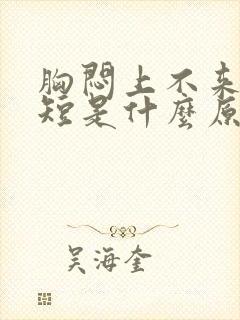 胸悶上不来
短是什麼原
吴海奎